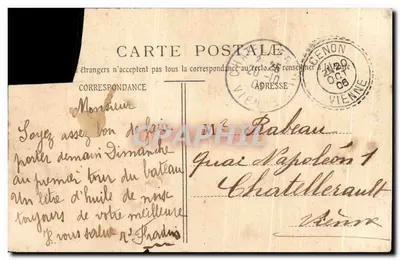 CARTE POSTALE
étrangers n'acceptent pas tous la correspondance au recto
CORRESPONDANCE
ADRESSE
CENON
20
OCT
06
VIENNE
Monsieur
Soyez assez bon de faire
porter demain Dimanche
au premier tour du bateau
un litre d'huile de noix
toujours de votre meilleure
Je vous salue
Mr Rabeau
Quai Napoléon 1
Chatellerault
Vienne